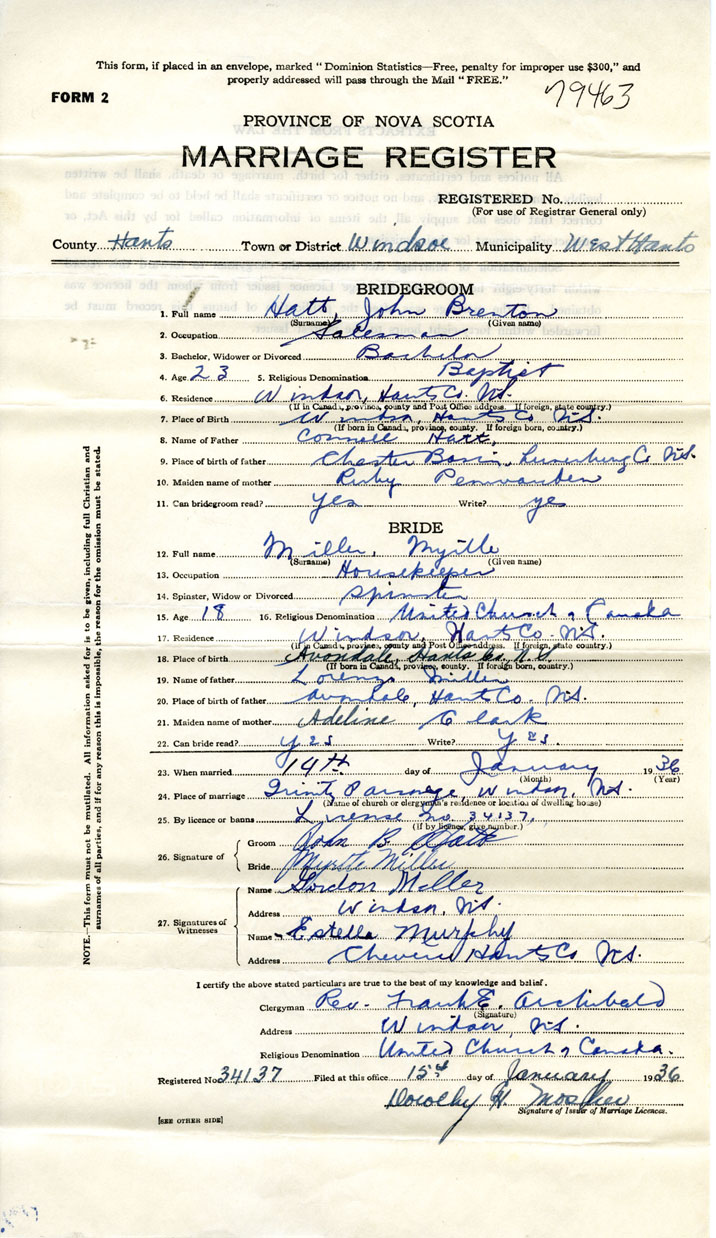 This form, if placed in an envelope, marked “Dominion Statistics—Free, penalty for improper use $300,” and
properly addressed will pass through the Mail “FREE.”
FORM 2
79463
PROVINCE OF NOVA SCOTIA
MARRIAGE REGISTER
REGISTERED No.
(For use of Registrar General only)
County Hants Town or District Windsor Municipality West Hants
BRIDEGROOM
1. Full name Hatt, John Brenton
(Surname) (Given name)
2. Occupation Salesman
3. Bachelor, Widower or Divorced Bachelor
4. Age 23 5. Religious Denomination Baptist
6. Residence Windsor, Hants Co. N.S.
(If in Canada, province, county and Post Office address. If foreign, state country.)
7. Place of Birth Windsor, Hants Co N.S.
(If born in Canada, province, county. If foreign born, country.)
8. Name of Father Connell Hatt,
9. Place of birth of father Chester Basin, Lunenburg Co N.S.
10. Maiden name of mother Ruby
11. Can bridegroom read? Yes Write? yes
BRIDE
12. Full name Miller, Myrtle
(Surname) (Given name)
13. Occupation Housekeeper
14. Spinster, Widow or Divorced Spinster
15. Age 18 16. Religious Denomination United Church of Canada
17. Residence Windsor, Hants Co. N.S.
(If in Canada, province, county and Post Office address. If foreign, state country.)
18. Place of birth Avondale, Hants Co. N.S.
(If born in Canada, province, county. If foreign born, country.)
19. Name of father Lorenzo Miller
20. Place of birth of father Avondale, Hants Co, N.S.
21. Maiden name of mother Adeline Clark
22. Can bride read? Yes Write? Yes.
23. When married 14th day of January 1936
(Month) (Year)
24. Place of marriage Trinity Parsonage Windsor, N.S.
(Name of church or clergyman's residence or location of dwelling house)
25. By licence or banns License no. 34137,
(If by licence, give number.)
26. Signature of
Groom John B. Hatt
Bride Myrtle Miller
27. Signatures of Witnesses
Name Gordon Miller
Address Windsor, N.S.
Name Estella Murphy
Address Cheverie Hants Co N.S.
I certify the above stated particulars are true to the best of my knowledge and belief.
Clergyman Rev. Frank E. Archibald
(Signature)
Address Windsor, N.S.
Religious Denomination United Church of Canada.
Registered No 34137 Filed at this office 15th day of January 1936
Dorothy H. Mosher
Signature of Issuer of Marriage Licences.
[SEE OTHER SIDE]
NOTE.—This form must not be mutilated. All information asked for is to be given, including full Christian and
surnames of all parties, and if for any reason this is impossible, the reason for the omission must be stated.